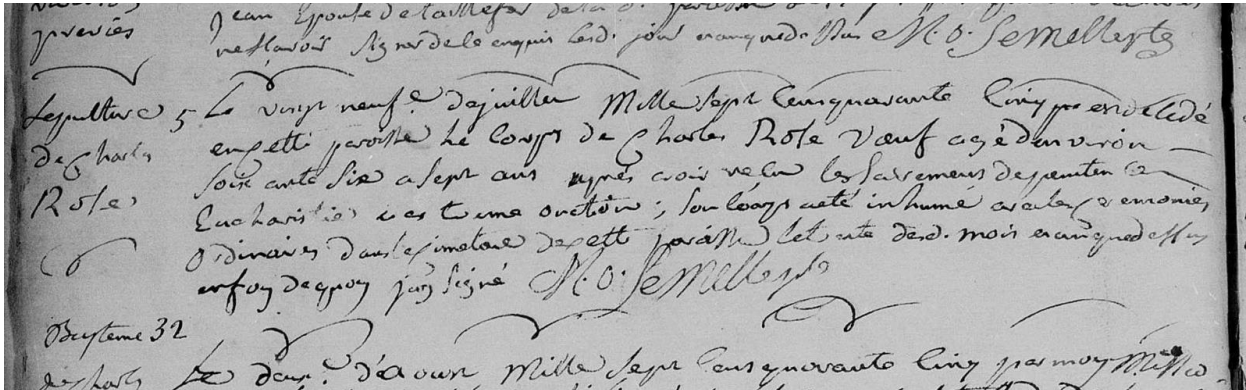 jean Epouse de
prevües n'estavoir signer de le enquis lesd. jour et an que dessus M. O. Le Mellerts
Sepulture 5 Le vingt neuf.e de juillet Mille sept Cens quarante Cinq est decedé
de Charles en cette paroisse Le Corps de Charles Rose veuf agé d'environ
soix ante six a sept ans aprés avoir reçu les sacremens de peniten ce
Rose Eucharistie et ext reme onction ; son corps a eté inhumé avec les ceremonies
ordinaires dans le cimetiere de cette paroisse le trente desd. mois et an que dessus
en foy de quoy j'ay signé M. O. Le Mellerts
Bapteme 32
de Charles Le deux.e d'Aoust Mille sept Cens quarante Cinq par moy Missio-